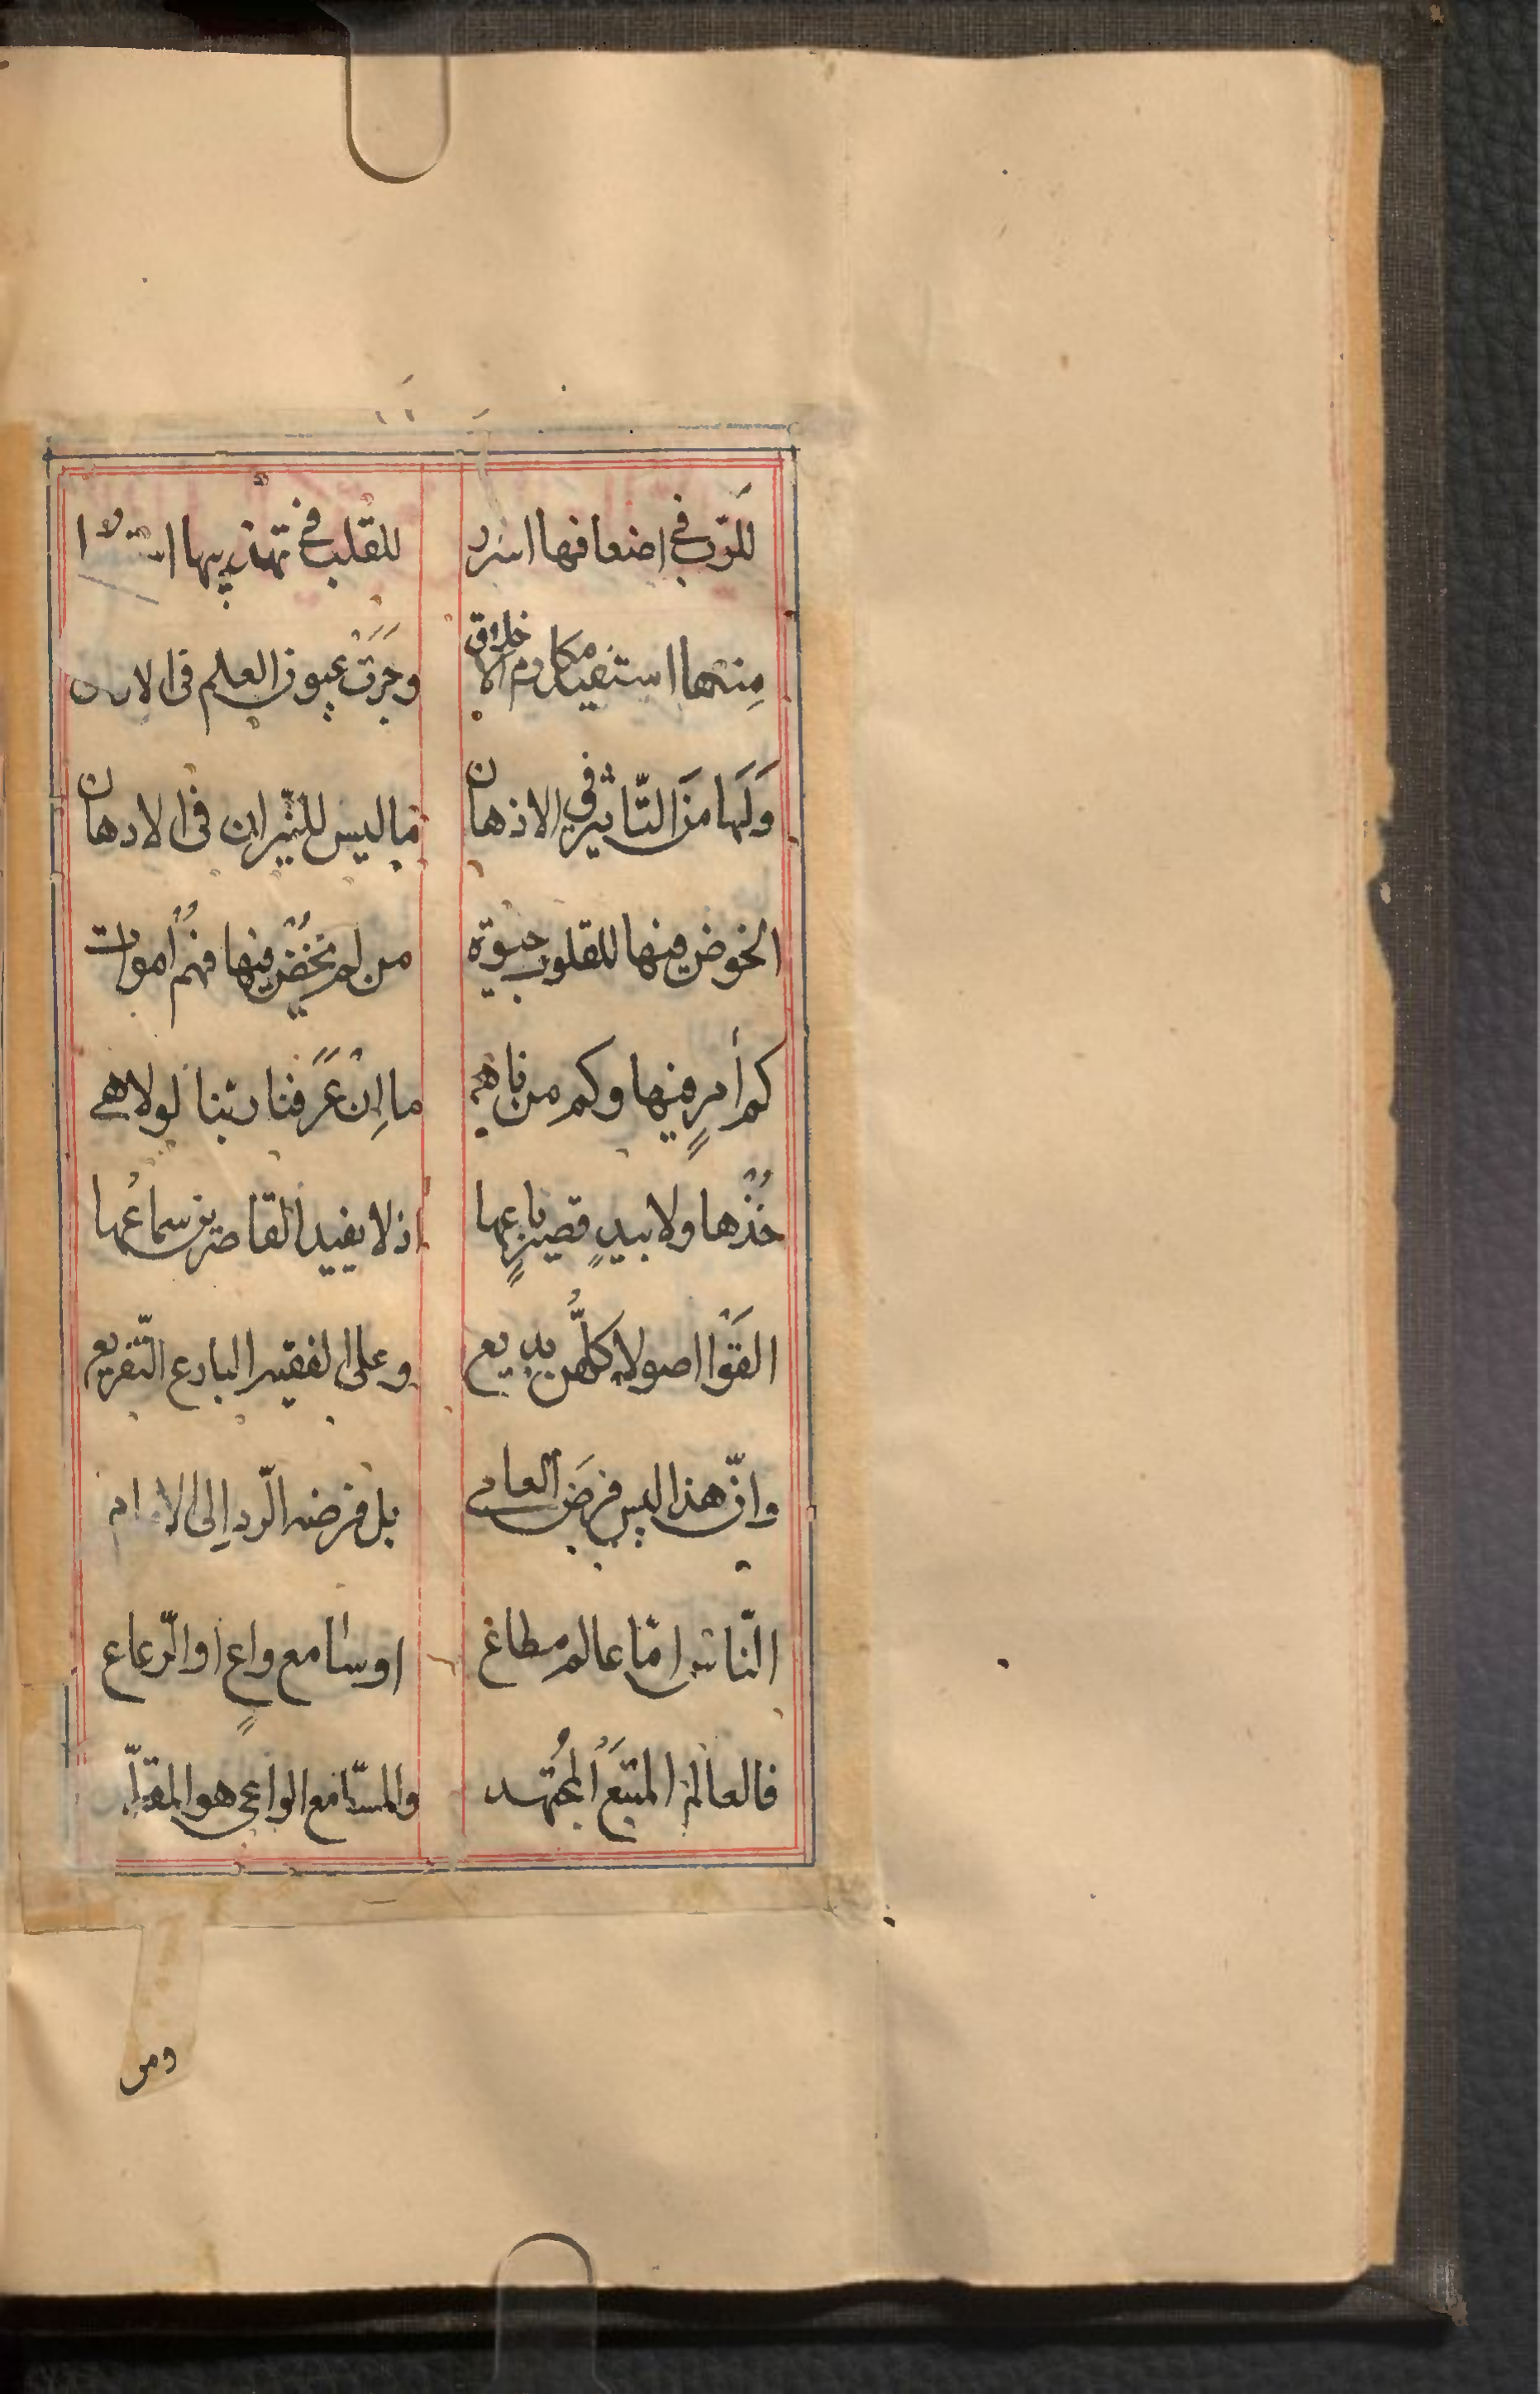 للرّب في اضعافها اسرا للقلب في تهذيبها
منها استفید مكارم الاخلاق وجَرَت عيون العلم في
وَلَها مِنَ التّاثير في الاذهان ما ليس للنّيران في الادهان
الخوض فيها للقلوب حيوة من لم يَخُضْ فيها فهُم أموات
كم أمرٍ فيها وكم من ناهي ما اِنْ عَرَفنا ربّنا لولا هي
خُذْها ولا بيدٍ قصيرٍ باعها اذ لا يفيد القاصرين سماعُها
القَوْا اصولا كلُّهن بديع وعلى الفقيه البارع التّفريع
وانّ هذا ليس فرضَ العامي بل فرضه الرّد اِلى الامام
النّاس امّا عالم مطاع او سامع واعٍ او الرّعاع
فالعالم المتبَع المُجتهد والسّامع الواعي هو المقلّد
ومن